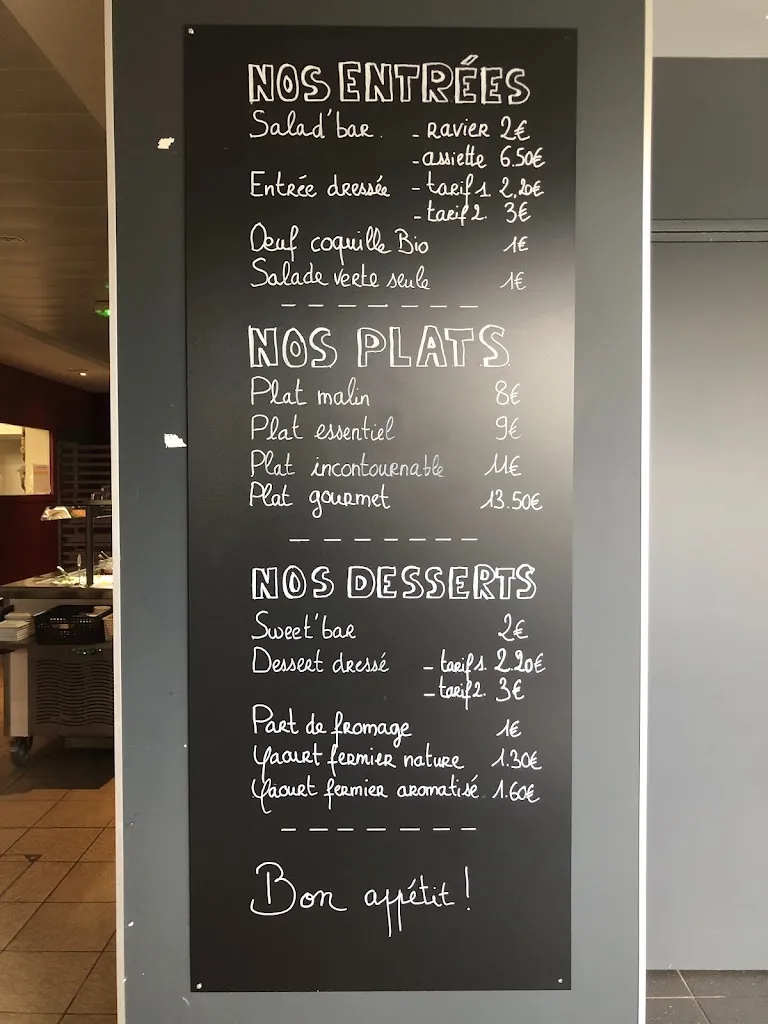 NOS ENTRÉES
Salad'bar. - RAVIER 2€
- assiette 6.50€
Entrée dressée - tarif 1. 2,20€
- tarif 2. 3€
Oeuf coquille Bio 1€
Salade verte seule 1€
NOS PLATS
Plat malin 8€
Plat essentiel 9€
Plat incontournable 11€
Plat gourmet 13.50€
NOS DESSERTS
Sweet'bar 2€
Dessert dressé - tarif 1. 2.20€
- tarif 2. 3€
Part de fromage 1€
Yaourt fermier nature 1.30€
Yaourt fermier aromatisé 1.60€
Bon appétit !